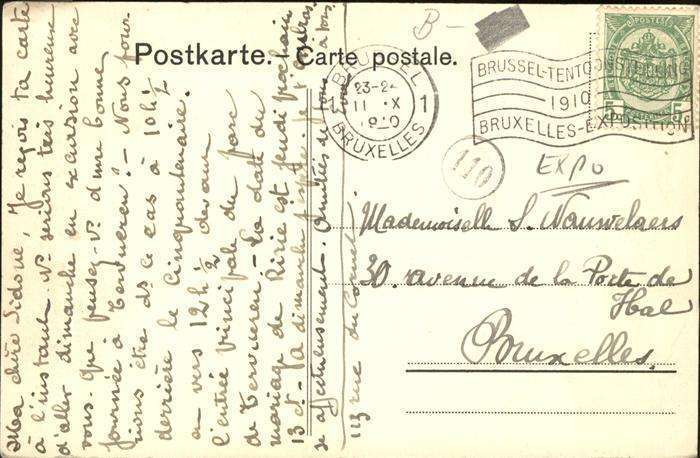 Postkarte. Carte postale.
B -
BRUSSEL
1 23-24 1
11 X
1910
BRUXELLES
BRUSSEL-TENTOONSTELLING
1910
BRUXELLES-EXPOSITION
POSTES
5 5
110
EXPO
Mademoiselle S. Nauwelaers
30. avenue de la Porte de
Hal
Bruxelles.
Ma chère Sidonie, Je reçois ta carte
à l'instant. Ns serions très heureux
d'aller dimanche en excursion avec
vous. Que pensez-vs d'une bonne
journée à Tervueren? - Nous pour-
rions être ds ce cas à 10h½
derrière le Cinquantenaire.
ou vers 12h½ devant
l'entrée principale du parc
de Tervueren - La date du
mariage de Ririe est jeudi prochain
13 ct. - à dimanche
affectueusement. Amitiés de tous à tous.
113 rue du Cornet